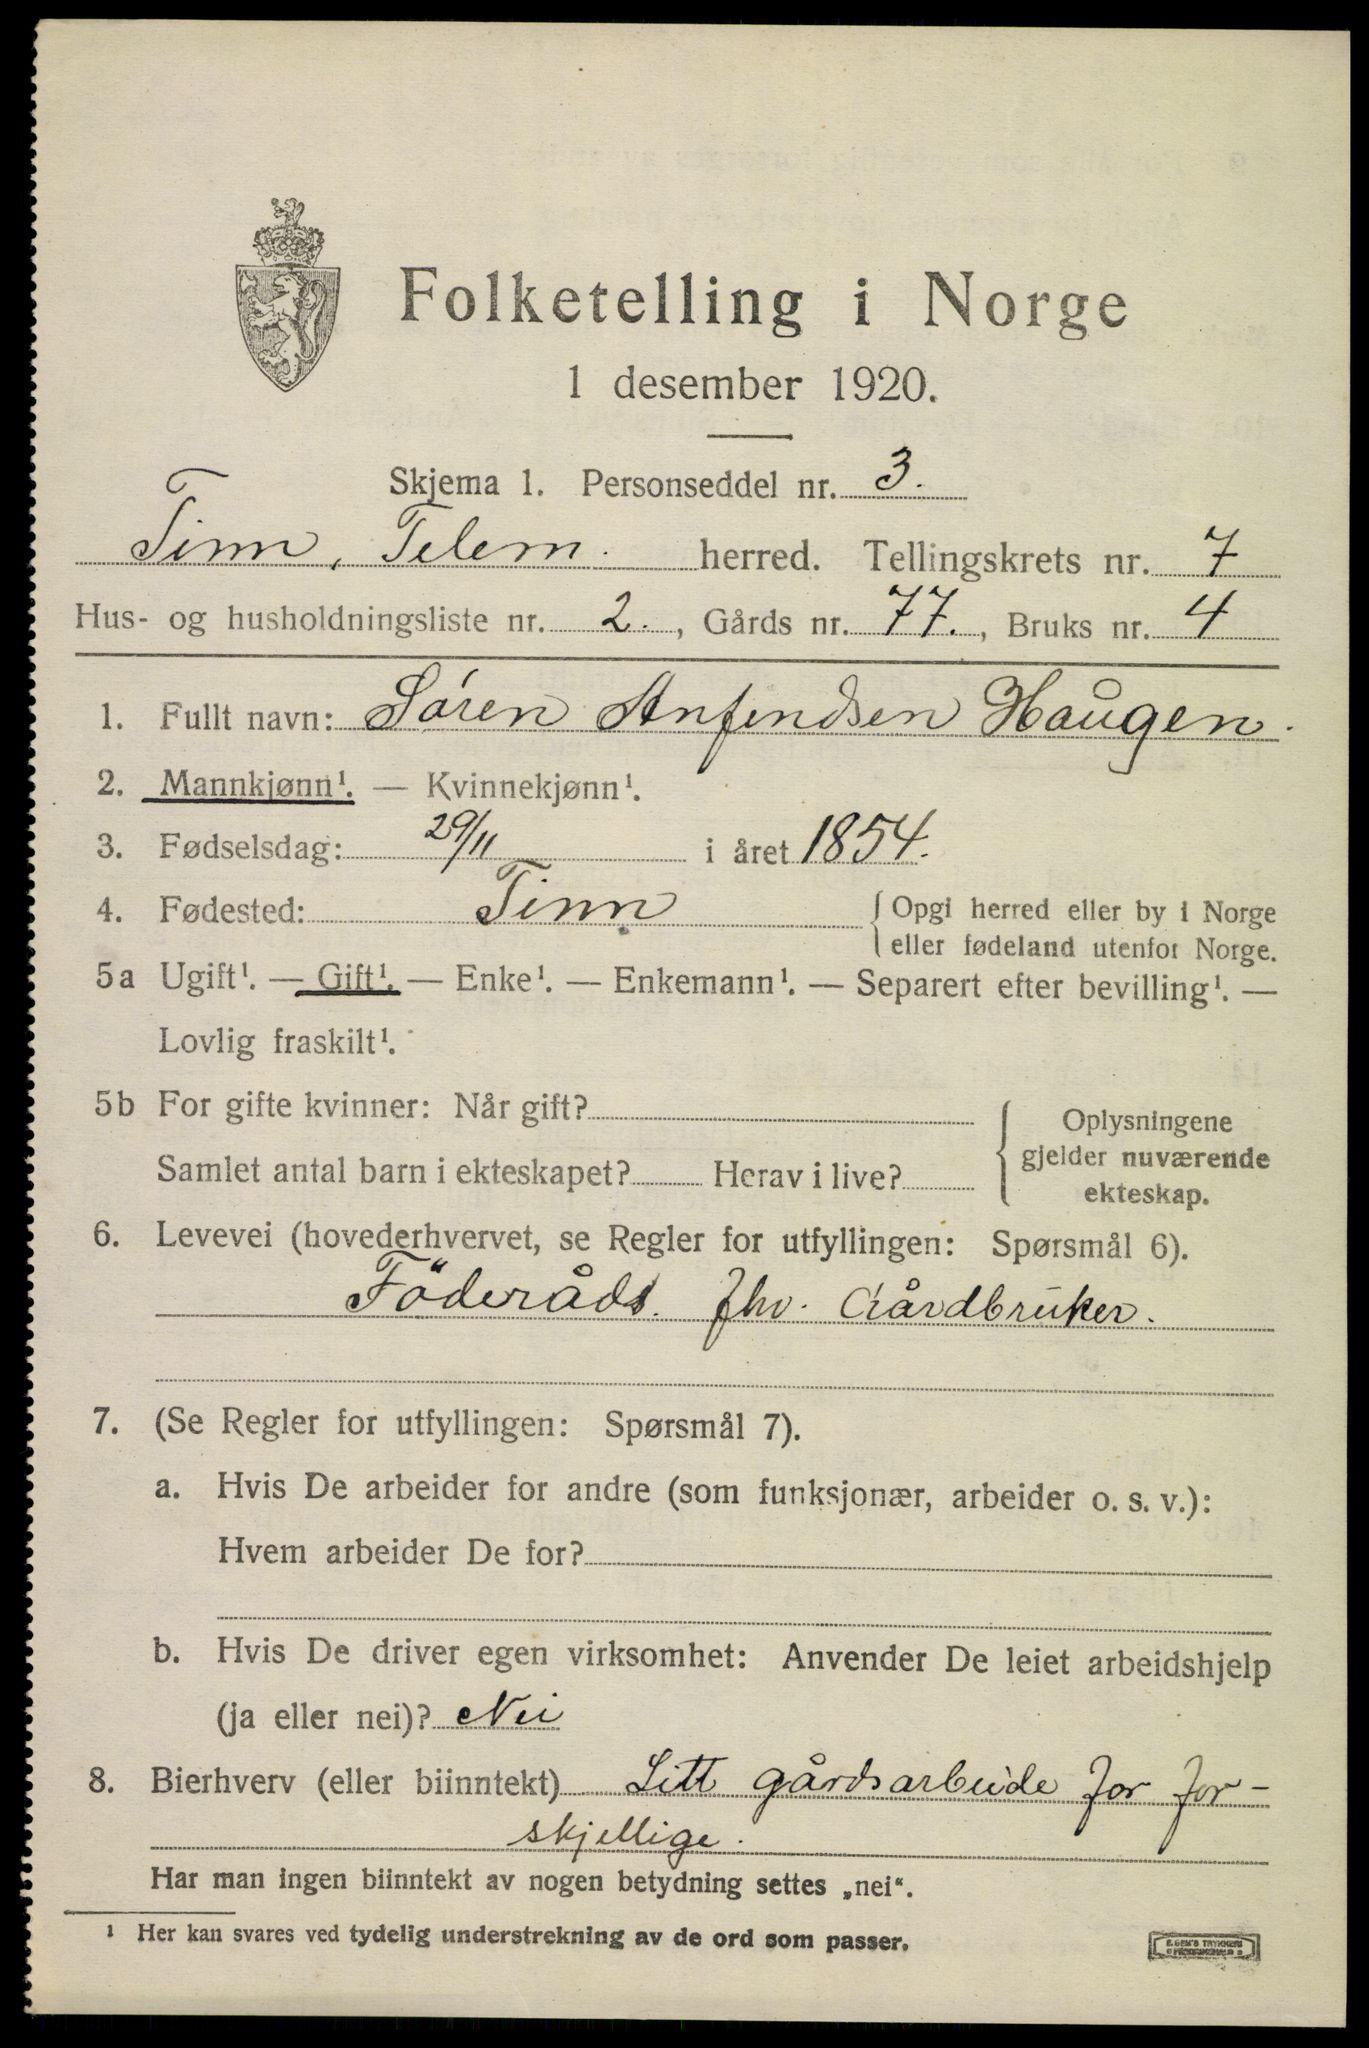 Folketelling i Norge
1 desember 1920.
Skjema 1. Personseddel nr. 3.
Tinn, Telem. herred. Tellingskrets nr. 7
Hus- og husholdningsliste nr. 2., Gårds nr. 77., Bruks nr. 4
1. Fullt navn: Søren Anfindsen Haugen.
2. Mannkjønn¹. — Kvinnekjønn¹.
3. Fødselsdag: 29/11 i året 1854.
4. Fødested: Tinn { Opgi herred eller by i Norge
eller fødeland utenfor Norge.
5a Ugift¹. — Gift¹. — Enke¹. — Enkemann¹. — Separert efter bevilling¹. —
Lovlig fraskilt¹.
5b For gifte kvinner: Når gift?
Samlet antal barn i ekteskapet? Herav i live?
Oplysningene
gjelder nuværende
ekteskap.
6. Levevei (hovederhvervet, se Regler for utfyllingen: Spørsmål 6).
Föderåds. fhv. Gårdbruker.
7. (Se Regler for utfyllingen: Spørsmål 7).
a. Hvis De arbeider for andre (som funksjonær, arbeider o. s. v.):
Hvem arbeider De for?
b. Hvis De driver egen virksomhet: Anvender De leiet arbeidshjelp
(ja eller nei)? Nei
8. Bierhverv (eller biinntekt) Litt gårdsarbeide for for-
skjellige.
Har man ingen biinntekt av nogen betydning settes „nei“.
¹ Her kan svares ved tydelig understrekning av de ord som passer.